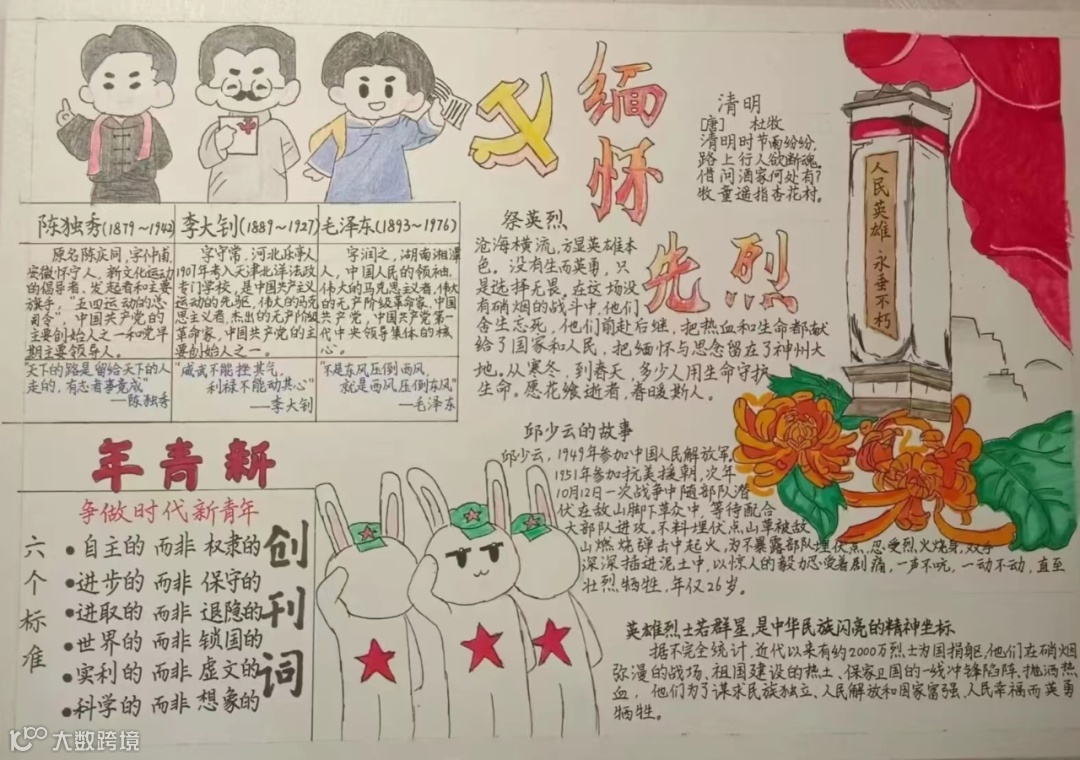 缅怀
先烈
清明
[唐] 杜牧
清明时节雨纷纷,
路上行人欲断魂。
借问酒家何处有?
牧童遥指杏花村。
人民英雄永垂不朽
陈独秀(1879~1942)
原名陈庆同,字仲甫,
安徽怀宁人,新文化运动
的倡导者、发起者和主要
旗手,"五四运动的总
司令",中国共产党的
主要创始人之一和党早
期主要领导人。
"天下的路是留给天下的人
走的,有志者事竟成"
——陈独秀
李大钊(1889~1927)
字守常,河北乐亭人,
1907年考入天津北洋法政
专门学校,是中国共产主义
运动的先驱,伟大的马克
思主义者,杰出的无产阶级
革命家,中国共产党的主
要创始人之一。
"威武不能挫其气,
利禄不能动其心"
——李大钊
毛泽东(1893~1976)
字润之,湖南湘潭
人,中国人民的领袖,
伟大的马克思主义者,伟大
的无产阶级革命家,中国
共产党,中国共产党第一
代中央领导集体的核
心。
"不是东风压倒西风,
就是西风压倒东风"
——毛泽东
祭英烈
沧海横流,方显英雄本
色。没有生而英勇,只
是选择无畏。在这场没
有硝烟的战斗中,他们
舍生忘死,他们前赴后继,把热血和生命都献
给了国家和人民,把缅怀与思念留在了神州大
地。从寒冬,到春天,多少人用生命守护
生命。愿花飨逝者,春暖斯人。
邱少云的故事
邱少云,1949年参加中国人民解放军。
1951年参加抗美援朝,次年
10月12日一次战争中随部队潜
伏在敌山脚下草众中,等待配合
大部队进攻。不料埋伏点山草被敌
山燃烧弹击中起火,为不暴露部队埋伏点,忍受烈火烧身,双手
深深插进泥土中,以惊人的毅力忍受着剧痛,一声不吭,一动不动,直至
壮烈牺牲,年仅26岁。
年青新
争做时代新青年
六个标准
●自主的 而非 奴隶的
●进步的 而非 保守的
●进取的 而非 退隐的
●世界的 而非 锁国的
●实利的 而非 虚文的
●科学的 而非 想象的
创刊词
英雄烈士若群星,是中华民族闪亮的精神坐标
据不完全统计,近代以来有约2000万烈士为国捐躯,他们在硝烟
弥漫的战场、祖国建设的热土、保家卫国的一线冲锋陷阵、抛洒热
血,他们为了谋求民族独立、人民解放和国家富强、人民幸福而英勇
牺牲。
大数跨境